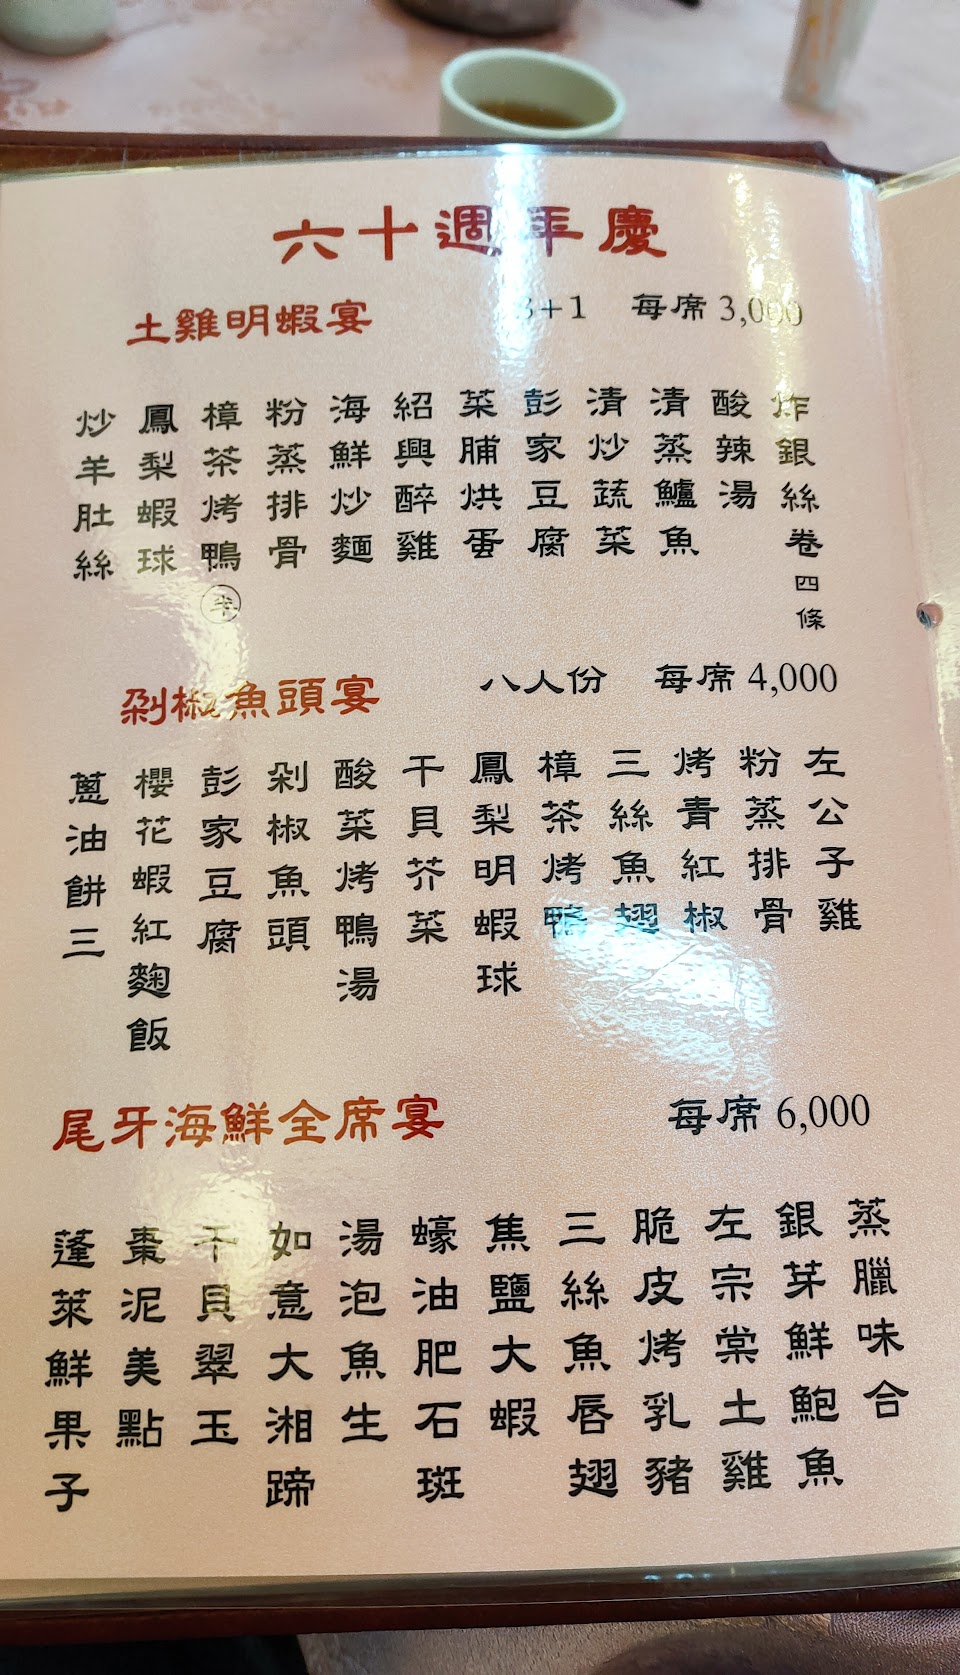 六十週年慶
土雞明蝦宴
3+1 每席 3,000
炸銀絲卷四條
酸辣湯
清蒸鱸魚
清炒蔬菜
彭家豆腐
菜脯烘蛋
紹興醉雞
海鮮炒麵
粉蒸排骨
樟茶烤鴨半
鳳梨蝦球
炒羊肚絲
剁椒魚頭宴
八人份 每席 4,000
左公子雞
粉蒸排骨
烤青紅椒
三絲魚翅
樟茶烤鴨
鳳梨明蝦球
干貝芥菜
酸菜烤鴨湯
剁椒魚頭
彭家豆腐
櫻花蝦紅麴飯
蔥油餅三
尾牙海鮮全席宴
每席 6,000
蒸臘味合
銀芽鮮鮑魚
左宗棠土雞
脆皮烤乳豬
三絲魚唇翅
焦鹽大蝦
蠔油肥石斑
湯泡魚生
如意大湘蹄
干貝翠玉
棗泥美點
蓬萊鮮果子